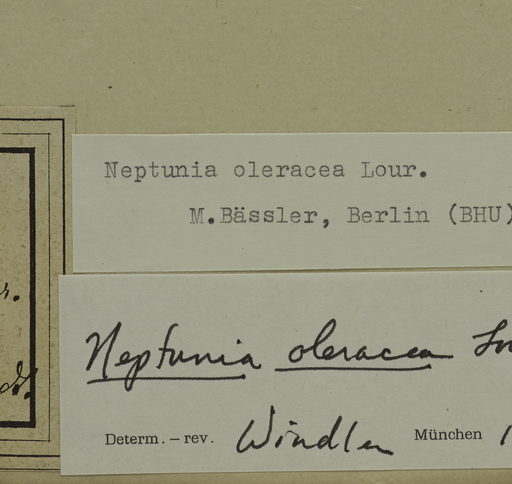 Neptunia oleracea Lour.
M.Bässler, Berlin (BHU)
Neptunia oleracea
Determ. – rev. Windler München 1